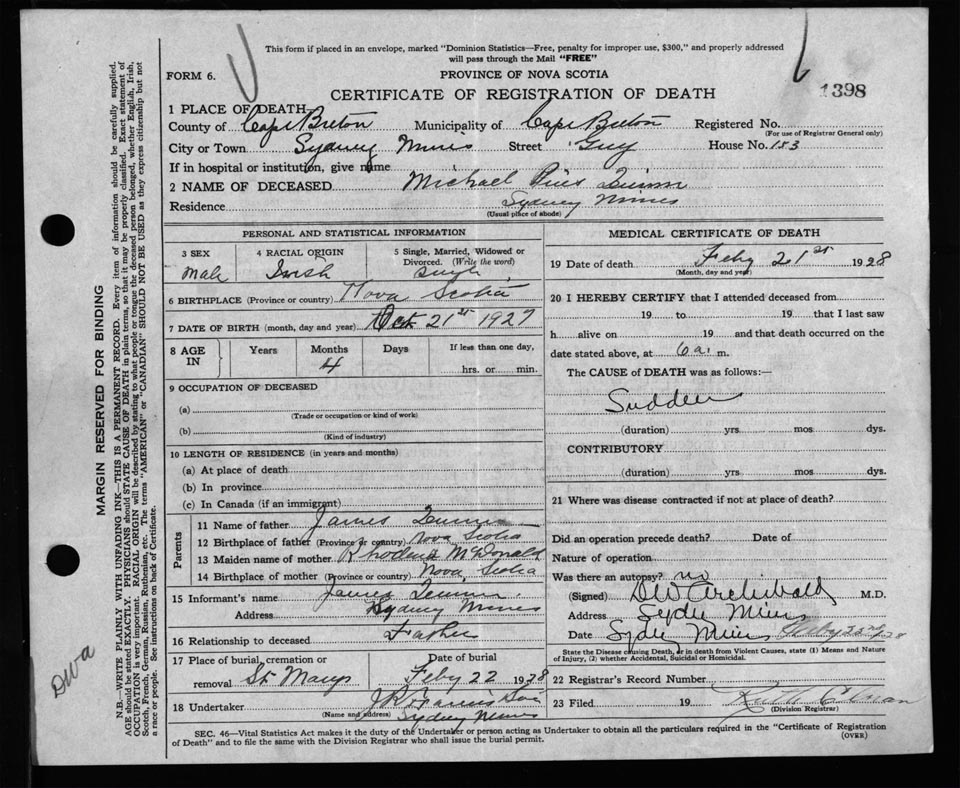 This form if placed in an envelope, marked "Dominion Statistics—Free, penalty for improper use, $300," and properly addressed
will pass through the Mail "FREE"
FORM 6.
PROVINCE OF NOVA SCOTIA
CERTIFICATE OF REGISTRATION OF DEATH
1398
1 PLACE OF DEATH—
County of Cape Breton Municipality of Cape Breton Registered No.
(For use of Registrar General only)
City or Town Sydney Mines Street Guy House No. 183
If in hospital or institution, give name
2 NAME OF DECEASED Michael Pius
Residence Sydney Mines
(Usual place of abode)
PERSONAL AND STATISTICAL INFORMATION
3 SEX 4 RACIAL ORIGIN 5 Single, Married, Widowed or
Divorced. (Write the word)
Male Irish Single
6 BIRTHPLACE (Province or country) Nova Scotia
7 DATE OF BIRTH (month, day and year) Oct 21st 1927
8 AGE IN Years Months Days If less than one day,
4 hrs. or min.
9 OCCUPATION OF DECEASED
(a)
(Trade or occupation or kind of work)
(b)
(Kind of industry)
10 LENGTH OF RESIDENCE (in years and months)
(a) At place of death
(b) In province
(c) In Canada (if an immigrant)
Parents
11 Name of father James
12 Birthplace of father (Province or country) Nova Scotia
13 Maiden name of mother McDonald
14 Birthplace of mother (Province or country) Nova Scotia
15 Informant's name James
Address Sydney Mines
16 Relationship to deceased Father
17 Place of burial, cremation or
removal St Marys
Date of burial
Feby 22 1928
18 Undertaker
(Name and address) Sydney Mines
MEDICAL CERTIFICATE OF DEATH
19 Date of death Feby 21st 1928
(Month, day and year)
20 I HEREBY CERTIFY that I attended deceased from
19 to 19 that I last saw
h alive on 19 and that death occurred on the
date stated above, at 6 a. m.
The CAUSE of DEATH was as follows:—
Sudden
(duration) yrs. mos dys.
CONTRIBUTORY
(duration) yrs mos dys.
21 Where was disease contracted if not at place of death?
Did an operation precede death? Date of
Nature of operation
Was there an autopsy? no
(Signed) DW Archibald M.D.
Address Sydn Mines
Date Sydn Mines Feby 22nd 28
State the Disease causing Death, or in death from Violent Causes, state (1) Means and Nature
of Injury, (2) whether Accidental, Suicidal or Homicidal.
22 Registrar's Record Number
23 Filed 19
(Division Registrar)
SEC. 46—Vital Statistics Act makes it the duty of the Undertaker or person acting as Undertaker to obtain all the particulars required in the "Certificate of Registration
of Death" and to file the same with the Division Registrar who shall issue the burial permit.
(OVER)
MARGIN RESERVED FOR BINDING
N.B.—WRITE PLAINLY WITH UNFADING INK—THIS IS A PERMANENT RECORD. Every item of information should be carefully supplied.
AGE should be stated EXACTLY. PHYSICIANS should STATE CAUSE OF DEATH in plain terms, so that it may be properly classified. Exact statement of
OCCUPATION is very important. RACIAL ORIGIN will be described by stating to what people or tongue the deceased person belonged, whether English, Irish,
Scotch, French, German, Russian, Ruthenian, etc. The terms "AMERICAN" or "CANADIAN" SHOULD NOT BE USED as they express citizenship but not
a race or people. See instructions on back of Certificate.
DWA